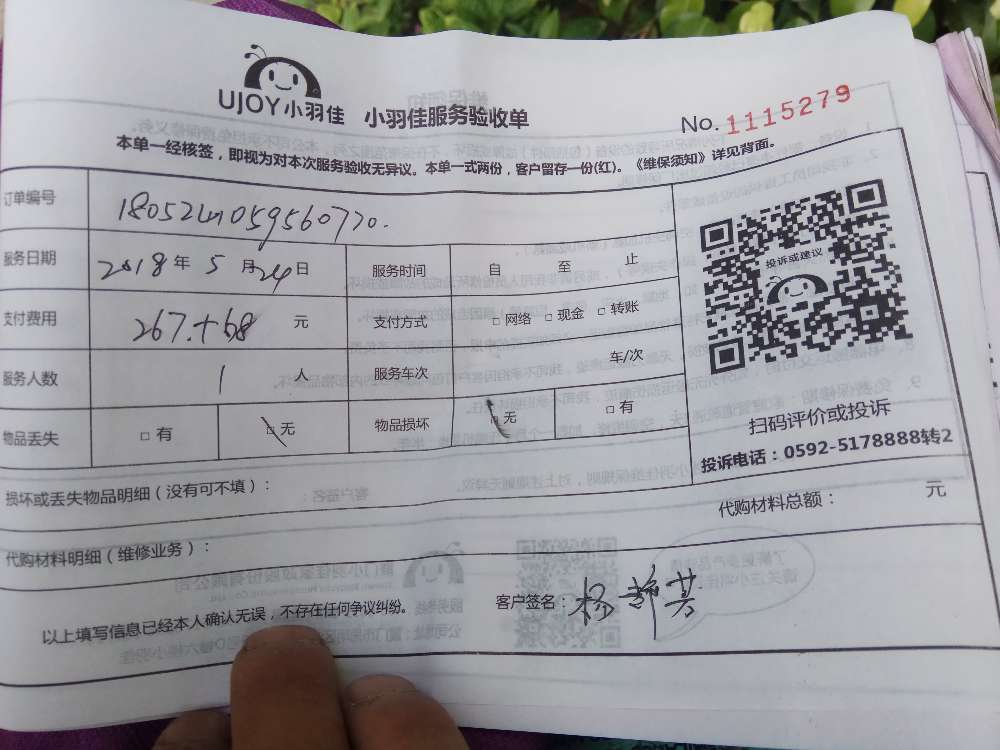 UJOY小羽佳 小羽佳服务验收单 No. 1115279
本单一经核签，即视为对本次服务验收无异议。本单一式两份，客户留存一份(红)。《维保须知》详见背面。
订单编号
服务日期 2018 年 5 月 24 日 服务时间 自 至 止
支付费用 267.+68 元 支付方式 □ 网络 □ 现金 □ 转账
服务人数 1 人 服务车次 车/次
物品丢失 □ 有 □ 无 物品损坏 □ 无 □ 有
投诉或建议
扫码评价或投诉
投诉电话：0592-5178888转2
损坏或丢失物品明细（没有可不填）：
代购材料总额： 元
代购材料明细（维修业务）：
以上填写信息已经本人确认无误，不存在任何争议纠纷。 客户签名：杨静芳